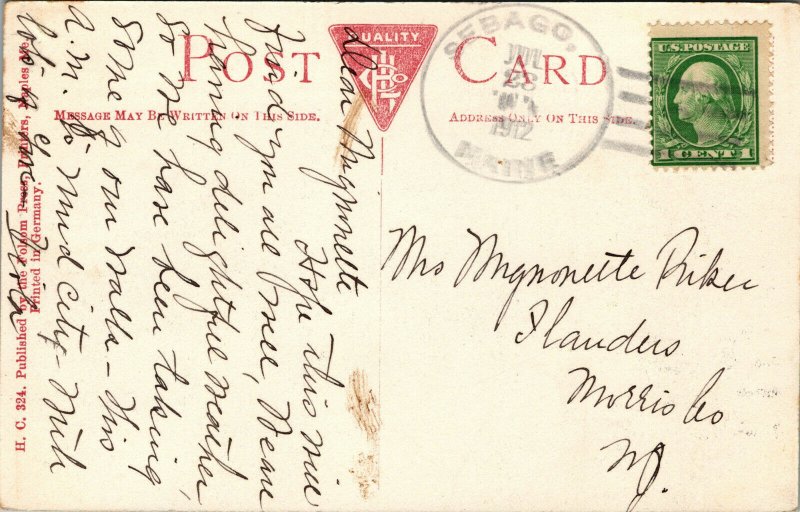 POST CARD
QUALITY
MESSAGE MAY BE WRITTEN ON THIS SIDE.
ADDRESS ONLY ON THIS SIDE.
SEBAGO,
JUL
23
1912
MAINE
U.S. POSTAGE
1 CENT 1
Dear Mignonette
Hope this will
find you all well, We are
having delightful weather,
so we have been taking
some of our walks - this
A.M. to Mud City - With
lots of love
H. C. 324. Published by the Folsom Press, Printers, Naples Me.
Printed in Germany.
Mrs Mygnonette Riker
Flanders
Morris Co
N.J.